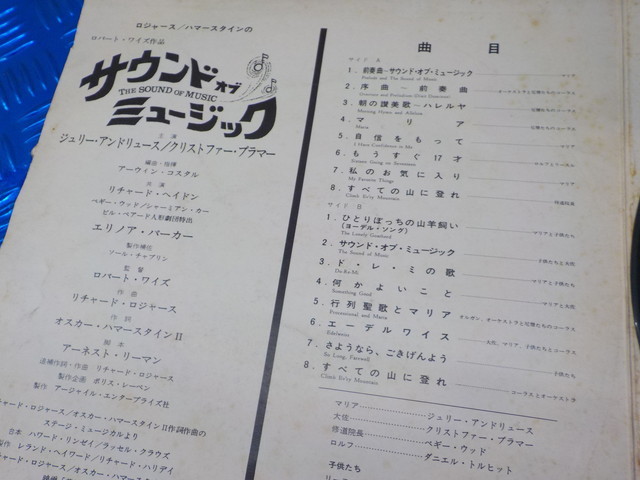 ロジャース/ハマースタインの
ロバート・ワイズ作品
サウンド オブ
THE SOUND OF MUSIC
ミュージック
主演
ジュリー・アンドリュース/クリストファー・プラマー
編曲・指揮
アーウィン・コスタル
共演
リチャード・ヘイドン
ペギー・ウッド/シャーミアン・カー
ビル・ベアード人形劇団特出
エリノア・パーカー
製作補佐
ソール・チャプリン
監督
ロバート・ワイズ
作曲
リチャード・ロジャース
作詞
オスカー・ハマースタインII
脚本
アーネスト・リーマン
追補作詞・作曲 リチャード・ロジャース
製作企画 ボリス・レーベン
製作 アージャイル・エンタープライズ社
チャード・ロジャース/オスカー・ハマースタインII作詞作曲の
ステージ・ミュージカルより
台本 ハワード・リンゼイ/ラッセル・クラウズ
製作 レランド・ヘイワード/リチャード・ハリデイ
チャード・ロジャース/オスカー・ハマースタイン
曲目
サイド A
1. 前奏曲~サウンド・オブ・ミュージック マリア
Prelude and The Sound of Music
2. 序曲~前奏曲 オーケストラと尼僧たちのコーラス
Overture and Preludium (Dixit Dominus)
3. 朝の讃美歌~ハレルヤ 尼僧たちのコーラス
Morning Hymn and Alleluia
4. マリア 尼僧たちのコーラス
Maria
5. 自信をもって マリア
I Have Confidence in Me
6. もうすぐ17才
Sixteen Going on Seventeen
7. 私のお気に入り マリア
My Favorite Things
8. すべての山に登れ 修道院長
Climb Ev'ry Mountain
サイド B
1. ひとりぼっちの山羊飼い マリアと子供たち
(ヨーデル・ソング)
The Lonely Goatherd
2. サウンド・オブ・ミュージック 子供たちと大佐
The Sound of Music
3. ド・レ・ミの歌 マリアと子供たち
Do-Re-Mi
4. 何かよいこと マリアと大佐
Something Good
5. 行列聖歌とマリア オルガン、オーケストラと尼僧たちのコーラス
Processional and Maria
6. エーデルワイス 大佐、マリア、子供たちとコーラス
Edelweiss
7. さようなら、ごきげんよう 子供たち
So Long, Farewell
8. すべての山に登れ コーラスとオーケストラ
Climb Ev'ry Mountain
マリア ジュリー・アンドリュース
大佐 クリストファー・プラマー
修道院長 ペギー・ウッド
ロルフ ダニエル・トルヒット
子供たち